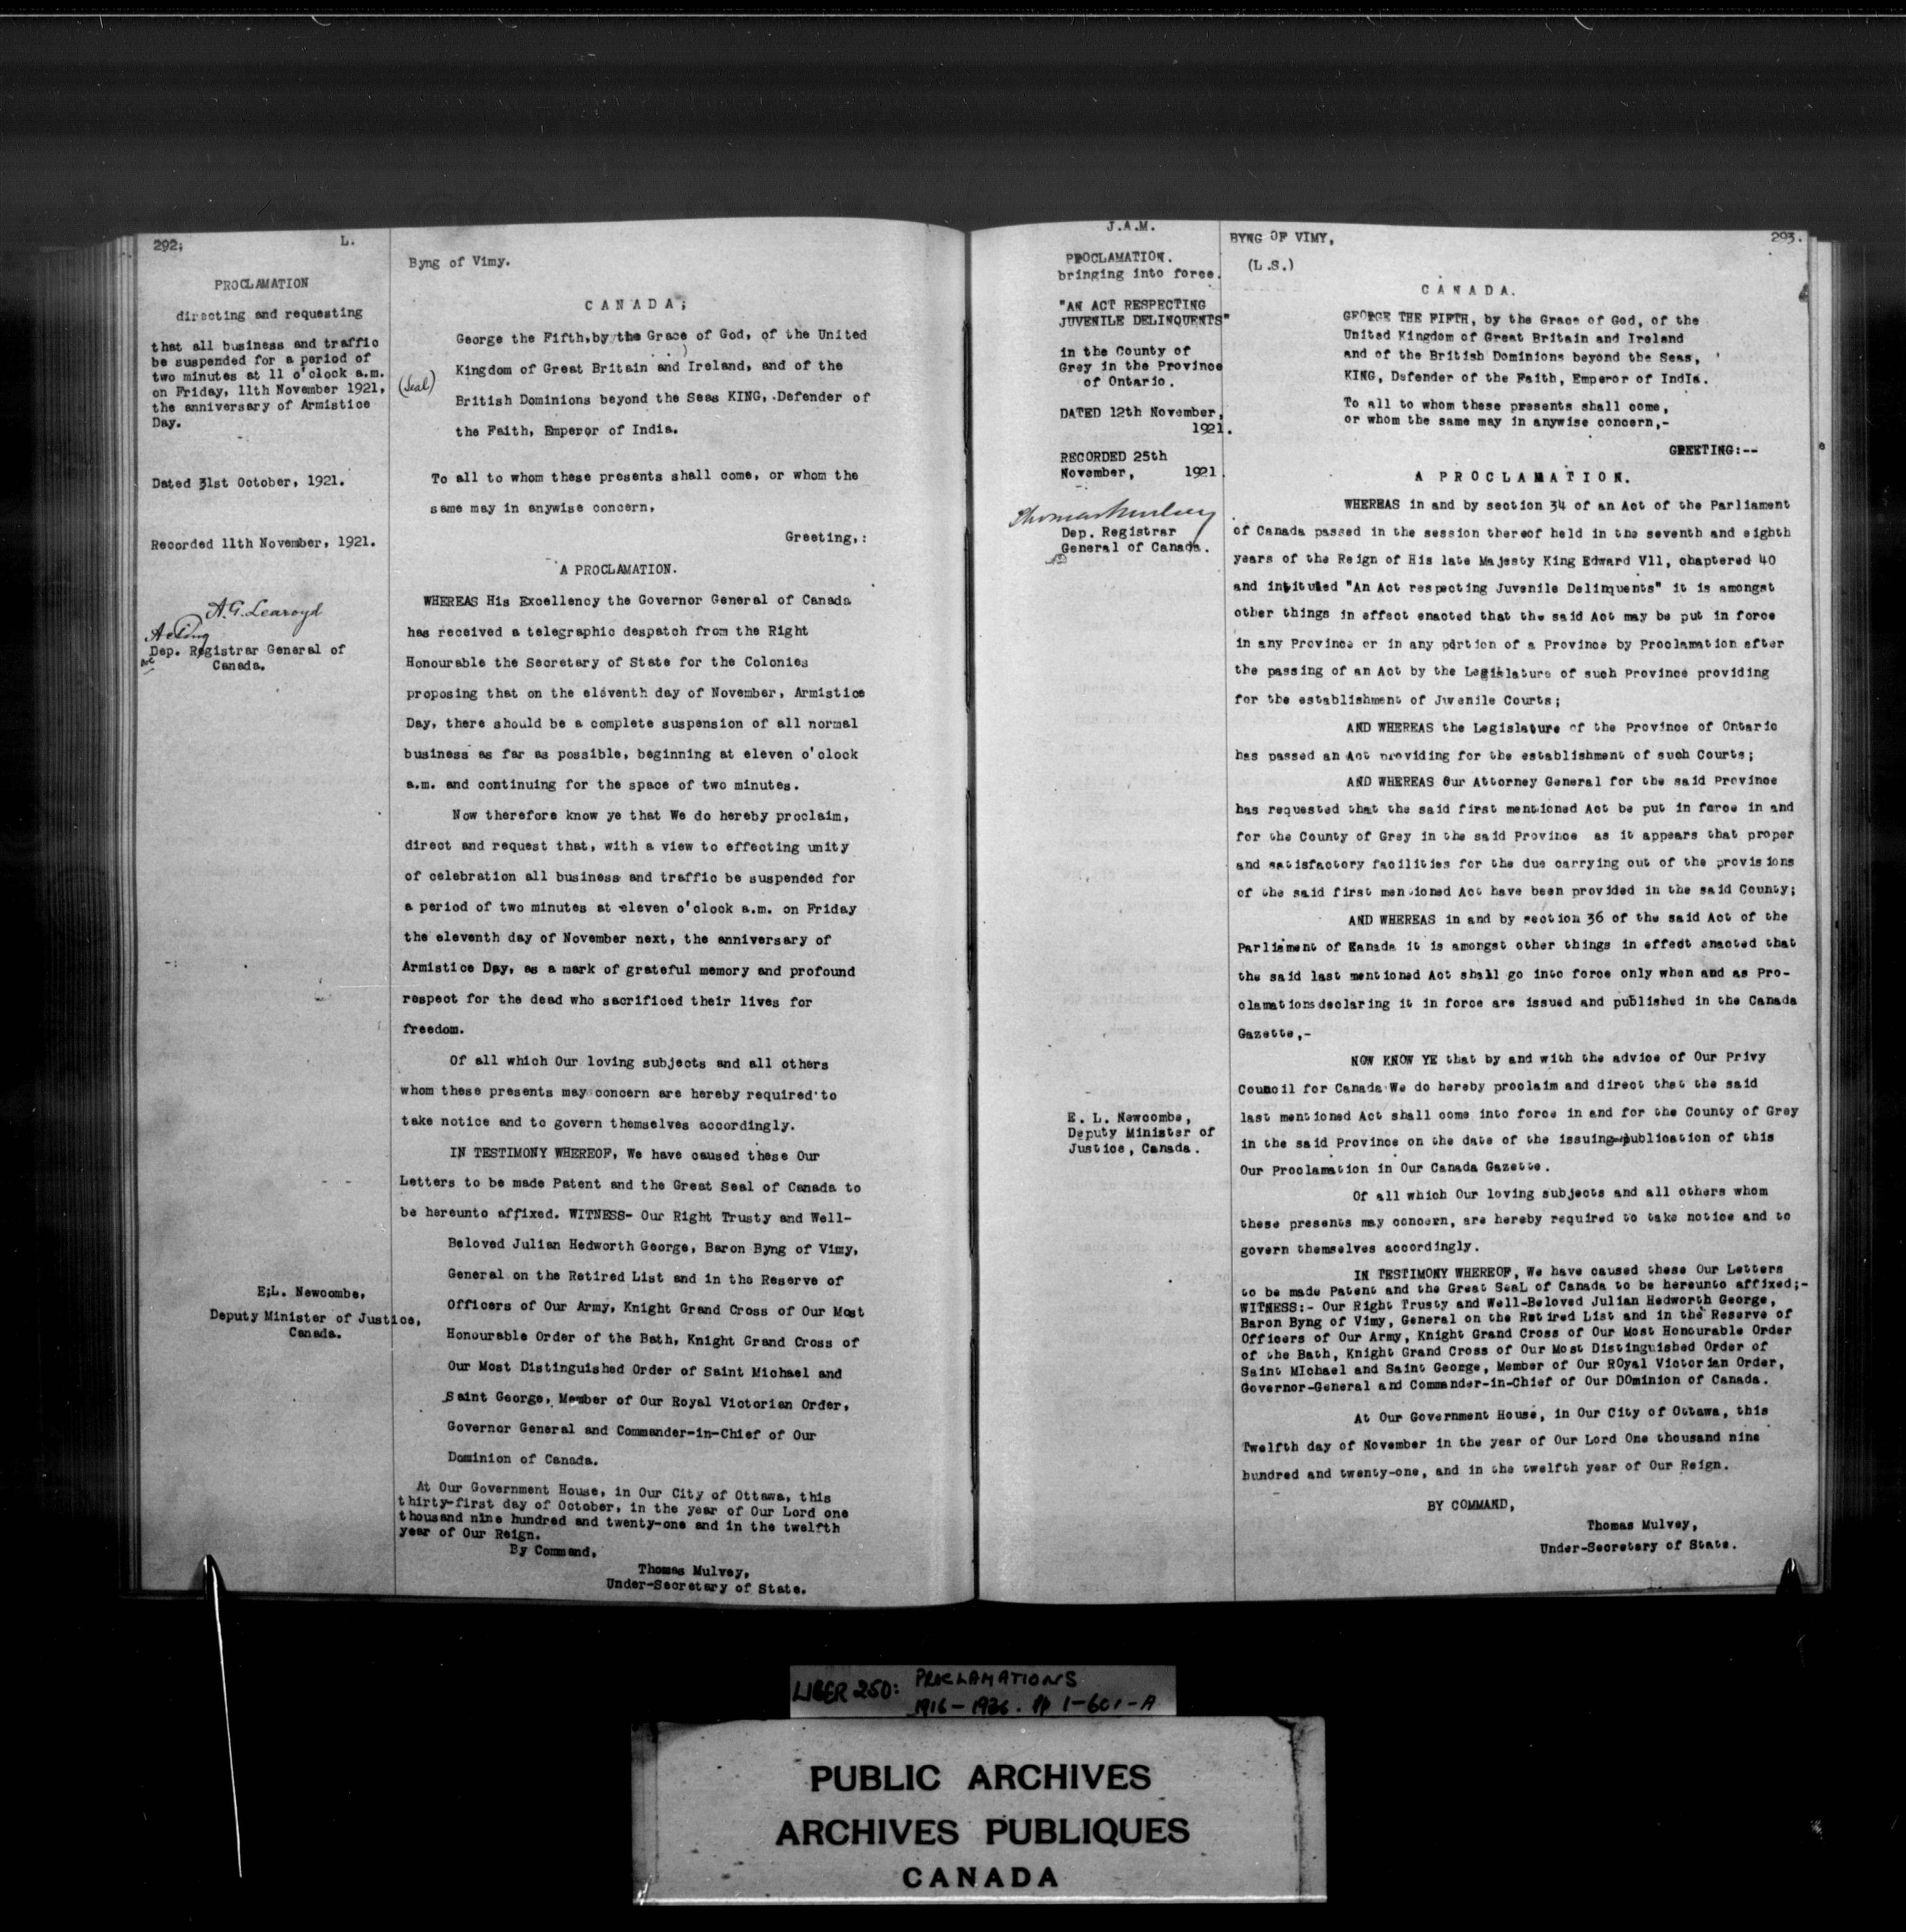 292;
L.
PROCLAMATION
directing and requesting
that all business and traffic
be suspended for a period of
two minutes at 11 o'clock a.m.
on Friday, 11th November 1921,
the anniversary of Armistice
Day.
Dated 31st October, 1921.
Recorded 11th November, 1921.
A.G. Learoyd
Acting
Dep. Registrar General of
Canada.
E;L. Newcombe,
Deputy Minister of Justice,
Canada.
Byng of Vimy.
C A N A D A ;
(Seal)
George the Fifth,by the Grace of God, of the United
Kingdom of Great Britain and Ireland, and of the
British Dominions beyond the Seas KING, Defender of
the Faith, Emperor of India.
To all to whom these presents shall come, or whom the
same may in anywise concern,
Greeting,:
A PROCLAMATION.
WHEREAS His Excellency the Governor General of Canada
has received a telegraphic despatch from the Right
Honourable the Secretary of State for the Colonies
proposing that on the eleventh day of November, Armistice
Day, there should be a complete suspension of all normal
business as far as possible, beginning at eleven o'clock
a.m. and continuing for the space of two minutes.
Now therefore know ye that We do hereby proclaim,
direct and request that, with a view to effecting unity
of celebration all business and traffic be suspended for
a period of two minutes at eleven o'clock a.m. on Friday
the eleventh day of November next, the anniversary of
Armistice Day, as a mark of grateful memory and profound
respect for the dead who sacrificed their lives for
freedom.
Of all which Our loving subjects and all others
whom these presents may concern are hereby required to
take notice and to govern themselves accordingly.
IN TESTIMONY WHEREOF, We have caused these Our
Letters to be made Patent and the Great Seal of Canada to
be hereunto affixed. WITNESS- Our Right Trusty and Well-
Beloved Julian Hedworth George, Baron Byng of Vimy,
General on the Retired List and in the Reserve of
Officers of Our Army, Knight Grand Cross of Our Most
Honourable Order of the Bath, Knight Grand Cross of
Our Most Distinguished Order of Saint Michael and
Saint George, Member of Our Royal Victorian Order,
Governor General and Commander-in-Chief of Our
Dominion of Canada.
At Our Government House, in Our City of Ottawa, this
thirty-first day of October, in the year of Our Lord one
thousand nine hundred and twenty-one and in the twelfth
year of Our Reign.
By Command,
Thomas Mulvey,
Under-Secretary of State.
J.A.M.
PROCLAMATION.
bringing into force.
"AN ACT RESPECTING
JUVENILE DELINQUENTS"
in the County of
Grey in the Province
of Ontario.
DATED 12th November,
1921.
RECORDED 25th
November, 1921.
Thomas Mulvey
Dep. Registrar
General of Canada.
E. L. Newcombe,
Deputy Minister of
Justice, Canada.
BYNG OF VIMY,
293.
(L.S.)
C A N A D A.
GEORGE THE FIFTH, by the Grace of God, of the
United Kingdom of Great Britain and Ireland
and of the British Dominions beyond the Seas,
KING, Defender of the Faith, Emperor of IndIa.
To all to whom these presents shall come,
or whom the same may in anywise concern,-
GREETING:--
A P R O C L A M A T I O N.
WHEREAS in and by section 34 of an Act of the Parliament
of Canada passed in the session thereof held in the seventh and eighth
years of the Reign of His late Majesty King Edward V11, chaptered 40
and intituled "An Act respecting Juvenile Delinquents" it is amongst
other things in effect enacted that the said Act may be put in force
in any Province or in any portion of a Province by Proclamation after
the passing of an Act by the Legislature of such Province providing
for the establishment of Juvenile Courts;
AND WHEREAS the Legislature of the Province of Ontario
has passed an Act providing for the establishment of such Courts;
AND WHEREAS Our Attorney General for the said Province
has requested that the said first mentioned Act be put in force in and
for the County of Grey in the said Province as it appears that proper
and satisfactory facilities for the due carrying out of the provisions
of the said first mentioned Act have been provided in the said County;
AND WHEREAS in and by section 36 of the said Act of the
Parliament of Kanada it is amongst other things in effect enacted that
the said last mentioned Act shall go into force only when and as Pro-
clamations declaring it in force are issued and published in the Canada
Gazette,-
NOW KNOW YE that by and with the advice of Our Privy
Council for Canada We do hereby proclaim and direct that the said
last mentioned Act shall come into force in and for the County of Grey
in the said Province on the date of the issuing and publication of this
Our Proclamation in Our Canada Gazette.
Of all which Our loving subjects and all others whom
these presents may concern, are hereby required to take notice and to
govern themselves accordingly.
IN TESTIMONY WHEREOF, We have caused these Our Letters
to be made Patent and the Great SeaL of Canada to be hereunto affixed;-
WITNESS:- Our Right Trusty and Well-Beloved Julian Hedworth George,
Baron Byng of Vimy, General on the Retired List and in the Reserve of
Officers of Our Army, Knight Grand Cross of Our Most Honourable Order
of the Bath, Knight Grand Cross of Our Most Distinguished Order of
Saint MIchael and Saint George, Member of Our ROyal Victorian Order,
Governor-General and Commander-in-Chief of Our DOminion of Canada.
At Our Government House, in Our City of Ottawa, this
Twelfth day of November in the year of Our Lord One thousand nine
hundred and twenty-one, and in the twelfth year of Our Reign.
BY COMMAND,
Thomas Mulvey,
Under-Secretary of State.
LIBER 250: PROCLAMATIONS
1916-1926. pp 1-601-A
PUBLIC ARCHIVES
ARCHIVES PUBLIQUES
CANADA